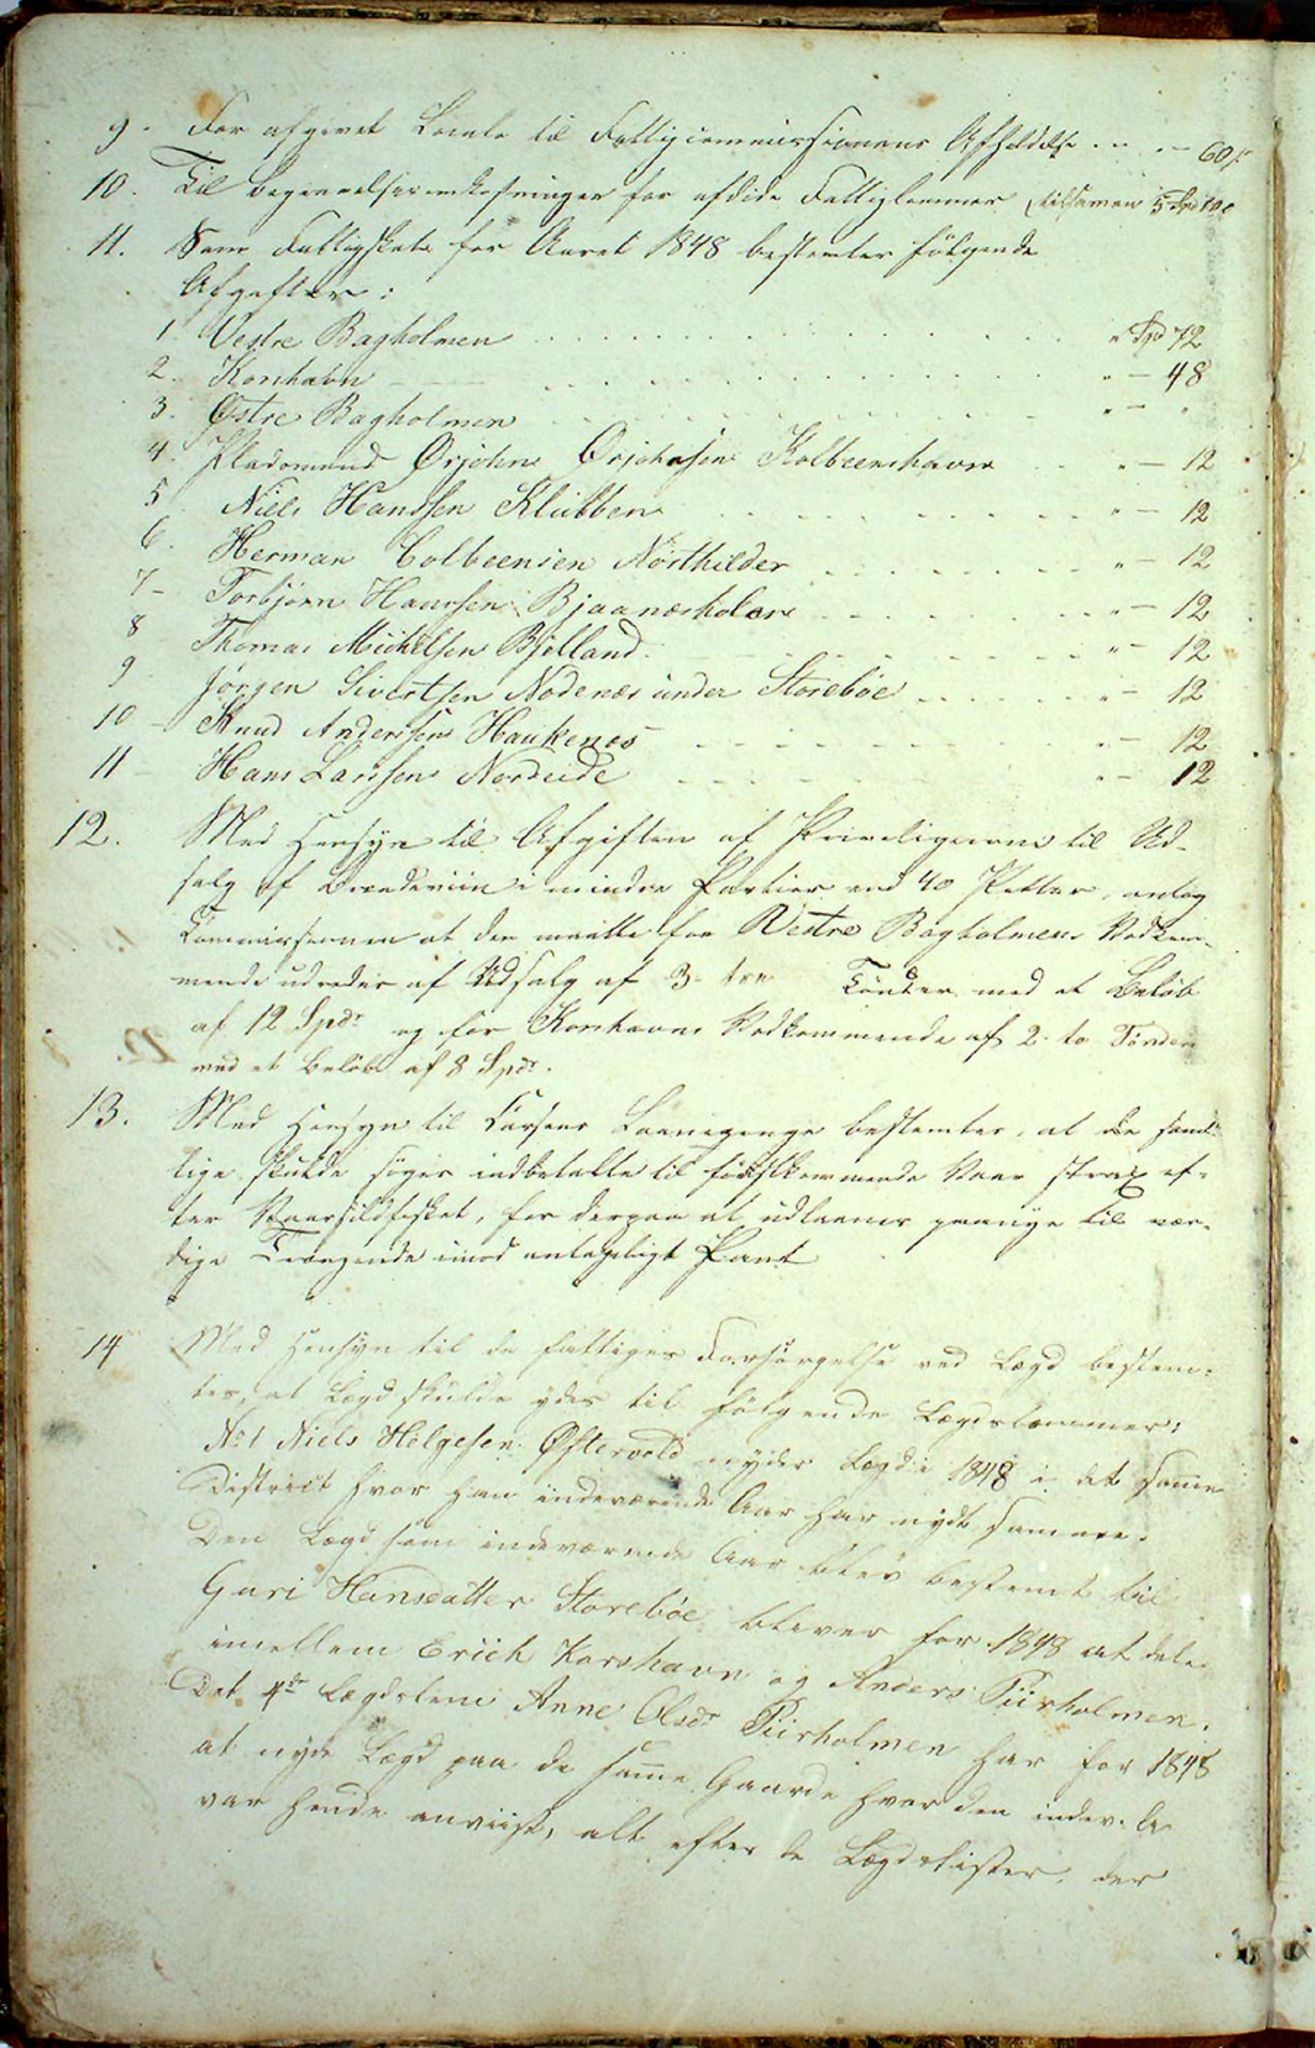 9. For afgivet Locale til Fattigcommissionens Afholdelse . . . — 60 s
10. Til Begravelsesomkostninger for afdøde Fattiglemmer tilsamen 5 Spd
11. Som Fattigskat for Aaret 1848 bestemtes følgende
Afgifter:
1. Vestre Bagholmen . . . " Spd 72
2. Korshavn — . . . " — 48
3. Østre Bagholmen . . . " — "
4. Pladsmand Ørjohn Ørjohnsen Kolbeenshavn . . " — 12
5 Niels Hanssen Klubben . . . " — 12
6. Herman Colbeensen Nørthilder . . . " — 12
7 - Torbjørn Haurssen Bjaanæsholm . . . " — 12
8 Thomas Mickelsen Bjelland . . . " — 12
9 Jørgen Sivertsen Nodenæs under Storebøe . . . " — 12
10 - Knud Anderssen Haukenes . . . " — 12
11 - Hans Larssen Nordeide . . . " — 12
12. Med Hensyn til Afgiften af Priviligierne til Ud-
salg af Brændeviin i mindre Partier end 40 Potter, antog
Commissionen at den maatte for Vestre Bagholmens Vedkom-
mende udredes af Udsalg af 3 - tre Tønder med et Beløb
af 12 Spdr og for Korshavns Vedkommende af 2 - to Tønder
med et Beløb af 8 Spdr.
13. Med Hensyn til Cassens Laanepenge bestemtes, at de samt-
lige skulde søges indbetalte til førstkommende Vaar strax ef-
ter Vaarsildfisket, for derpaa at udlaanes paanye til vær-
dige Trængende imod antageligt Pant
14 Med Hensyn til de fattiges Forsørgelse ved Lægd bestem-
tes, at Lægd skulde ydes til følgende Lægdslemmer:
No 1 Niels Helgesen Østervold nyder Lægd i 1848 i det samme
District hvor han indeværende Aar har nydt samme.
Den Lægd som indeværende Aar blev bestemt til
Guri Hansdatter Storebøe bliver for 1848 at dele
imellem Erich Korshavn og Anders Piirholmen.
Det 4de Lægdslem Anne Olsdr Piirholmen har for 1848
at nyde Lægd paa de samme Gaarde hvor den indev. A
var hende anviist, alt efter de Lægdslister, der